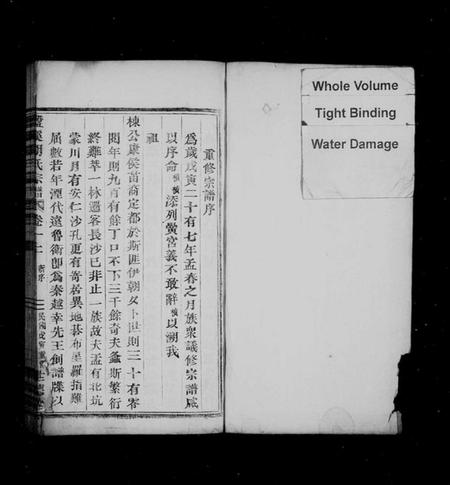 重修宗譜序
爲歲戊寅二十有七年孟春之月族衆議修宗譜咸
以序命 添列黌宮義不敢辭 以溯我
祖
棟公康侯苗裔定都於斯匪伊朝夕卜世則三十有零
閱年則九百有餘丁口不下三千餘奇夫螽斯繁衍
終難萃一林遷客長沙已非止一族故夫孟有北坑
蒙川月有安仁沙孔更有寄居異地碁布星羅指難
屈數若年湮代遠魯衛卽爲秦越幸先王創譜牒以
胡氏宗譜 卷一
序
民國戊寅重
Whole Volume
Tight Binding
Water Damage